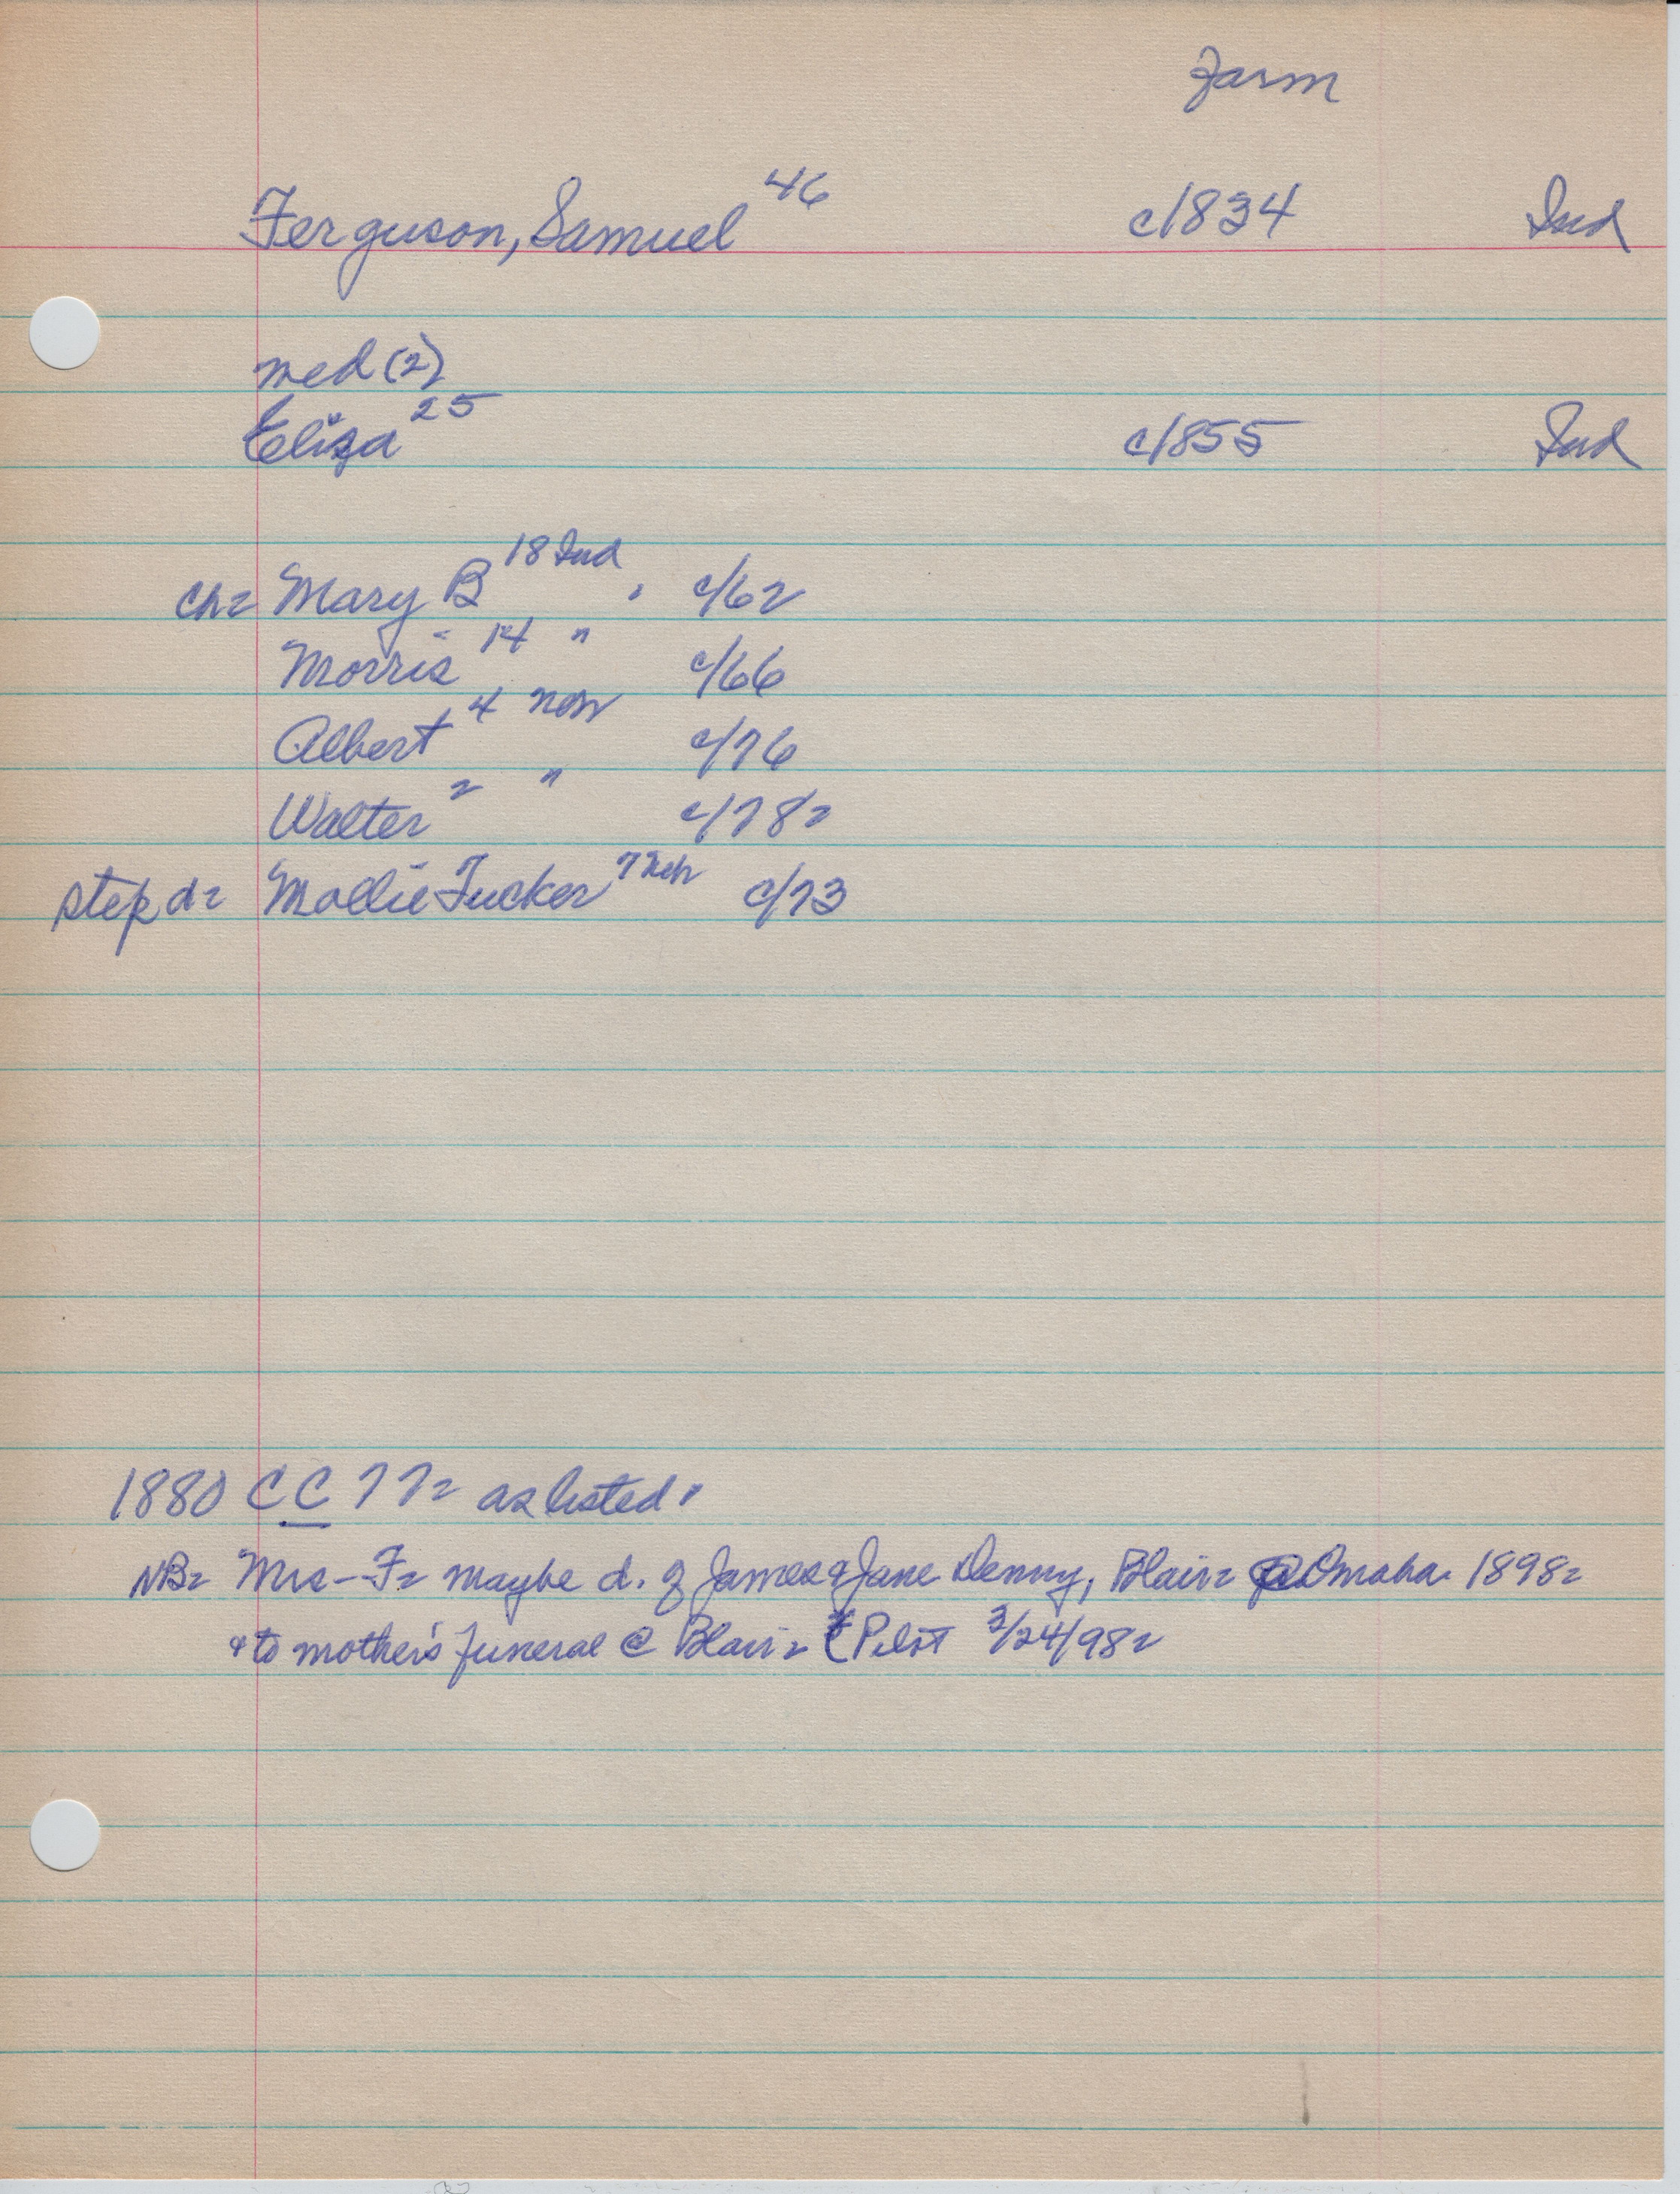 Farm
Ferguson, Samuel 46 c1834 Ind
med (2)
Eliza 25 c1855 Ind
ch= Mary B 18 Ind, c/62
Morris 14 " c/66
Albert 4 c/76
Walter 2 " c/78=
step d= Mollie Tucker 7 Neb c/73
1880 CC 77= as listed.
NB= Mrs - F= maybe d. of James & Jane Denny, Blair= @ Omaha 1898=
& to mother's funeral @ Blair= (Pilot 3/24/98=